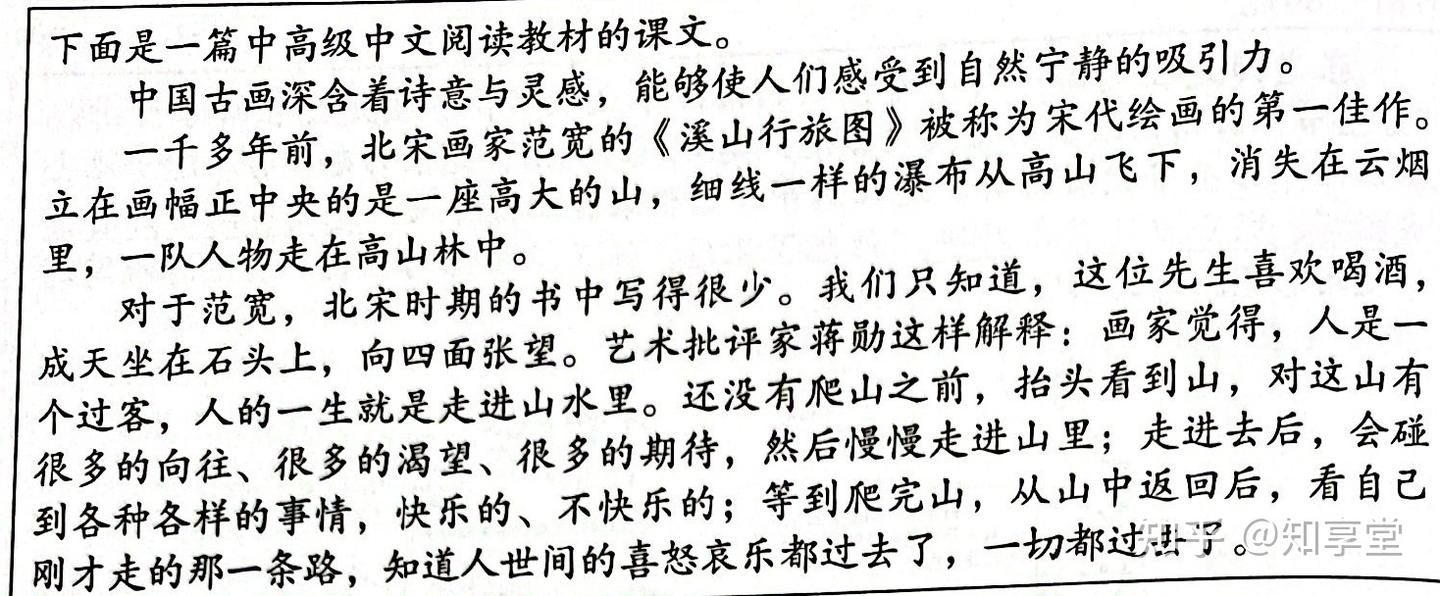 下面是一篇中高级中文阅读教材的课文。
中国古画深含着诗意与灵感，能够使人们感受到自然宁静的吸引力。
一千多年前，北宋画家范宽的《溪山行旅图》被称为宋代绘画的第一佳作。
立在画幅正中央的是一座高大的山，细线一样的瀑布从高山飞下，消失在云烟
里，一队人物走在高山林中。
对于范宽，北宋时期的书中写得很少。我们只知道，这位先生喜欢喝酒，
成天坐在石头上，向四面张望。艺术批评家蒋勋这样解释：画家觉得，人是一
个过客，人的一生就是走进山水里。还没有爬山之前，抬头看到山，对这山有
很多的向往、很多的渴望、很多的期待，然后慢慢走进山里；走进去后，会碰
到各种各样的事情，快乐的、不快乐的；等到爬完山，从山中返回后，看自己
刚才走的那一条路，知道人世间的喜怒哀乐都过去了，一切都过去了。
知乎 @知享堂